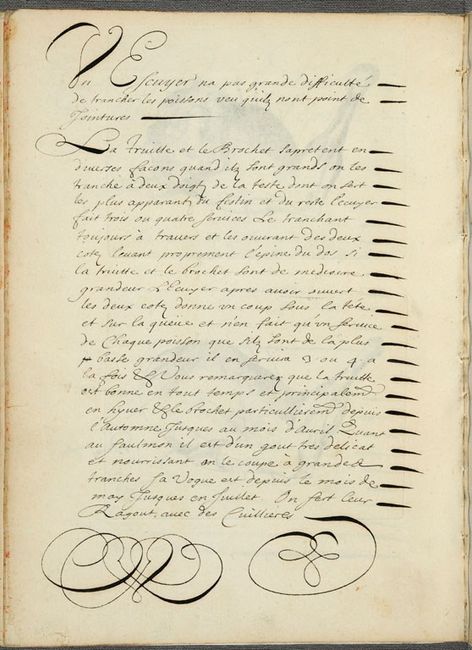 Un Escuyer na pas grande difficulté
de trancher les poissons veu quilz nont point de
Jointures
La truitte et le Brochet sapretent en
diverses facons quand ilz sont grands on les
tranche à deux doigtz de la teste dont on sert
les plus apparantz du festin et du reste lecuyer
fait trois ou quatre services Le tranchant
toujours à travers et les ouvrant des deux
cotez louant proprement l'épine du dos si
la truitte et le brochet sont de mediocre
grandeur L'Ecuyer apres auoir ouvert
les deux cotez donne un coup sous la tete
et sur la queüe et n'en fait qu'un service
de Chaque poisson que silz sont de la plus
basse grandeur il en servira 3 ou 4 a
la fois & Vous remarquerez que la truitte
est bonne en tout temps et principalemt
en hyuer & le brochet particullieremt depuis
l'automne Jusques au mois d'avril Quant
au saulmon il est d'un gout tres delicat
et nourrissant on le coupe à grandes
tranches sa Vogue est depuis le mois de
may Jusques en Juillet On sert leur
Ragout avec des Cuillieres